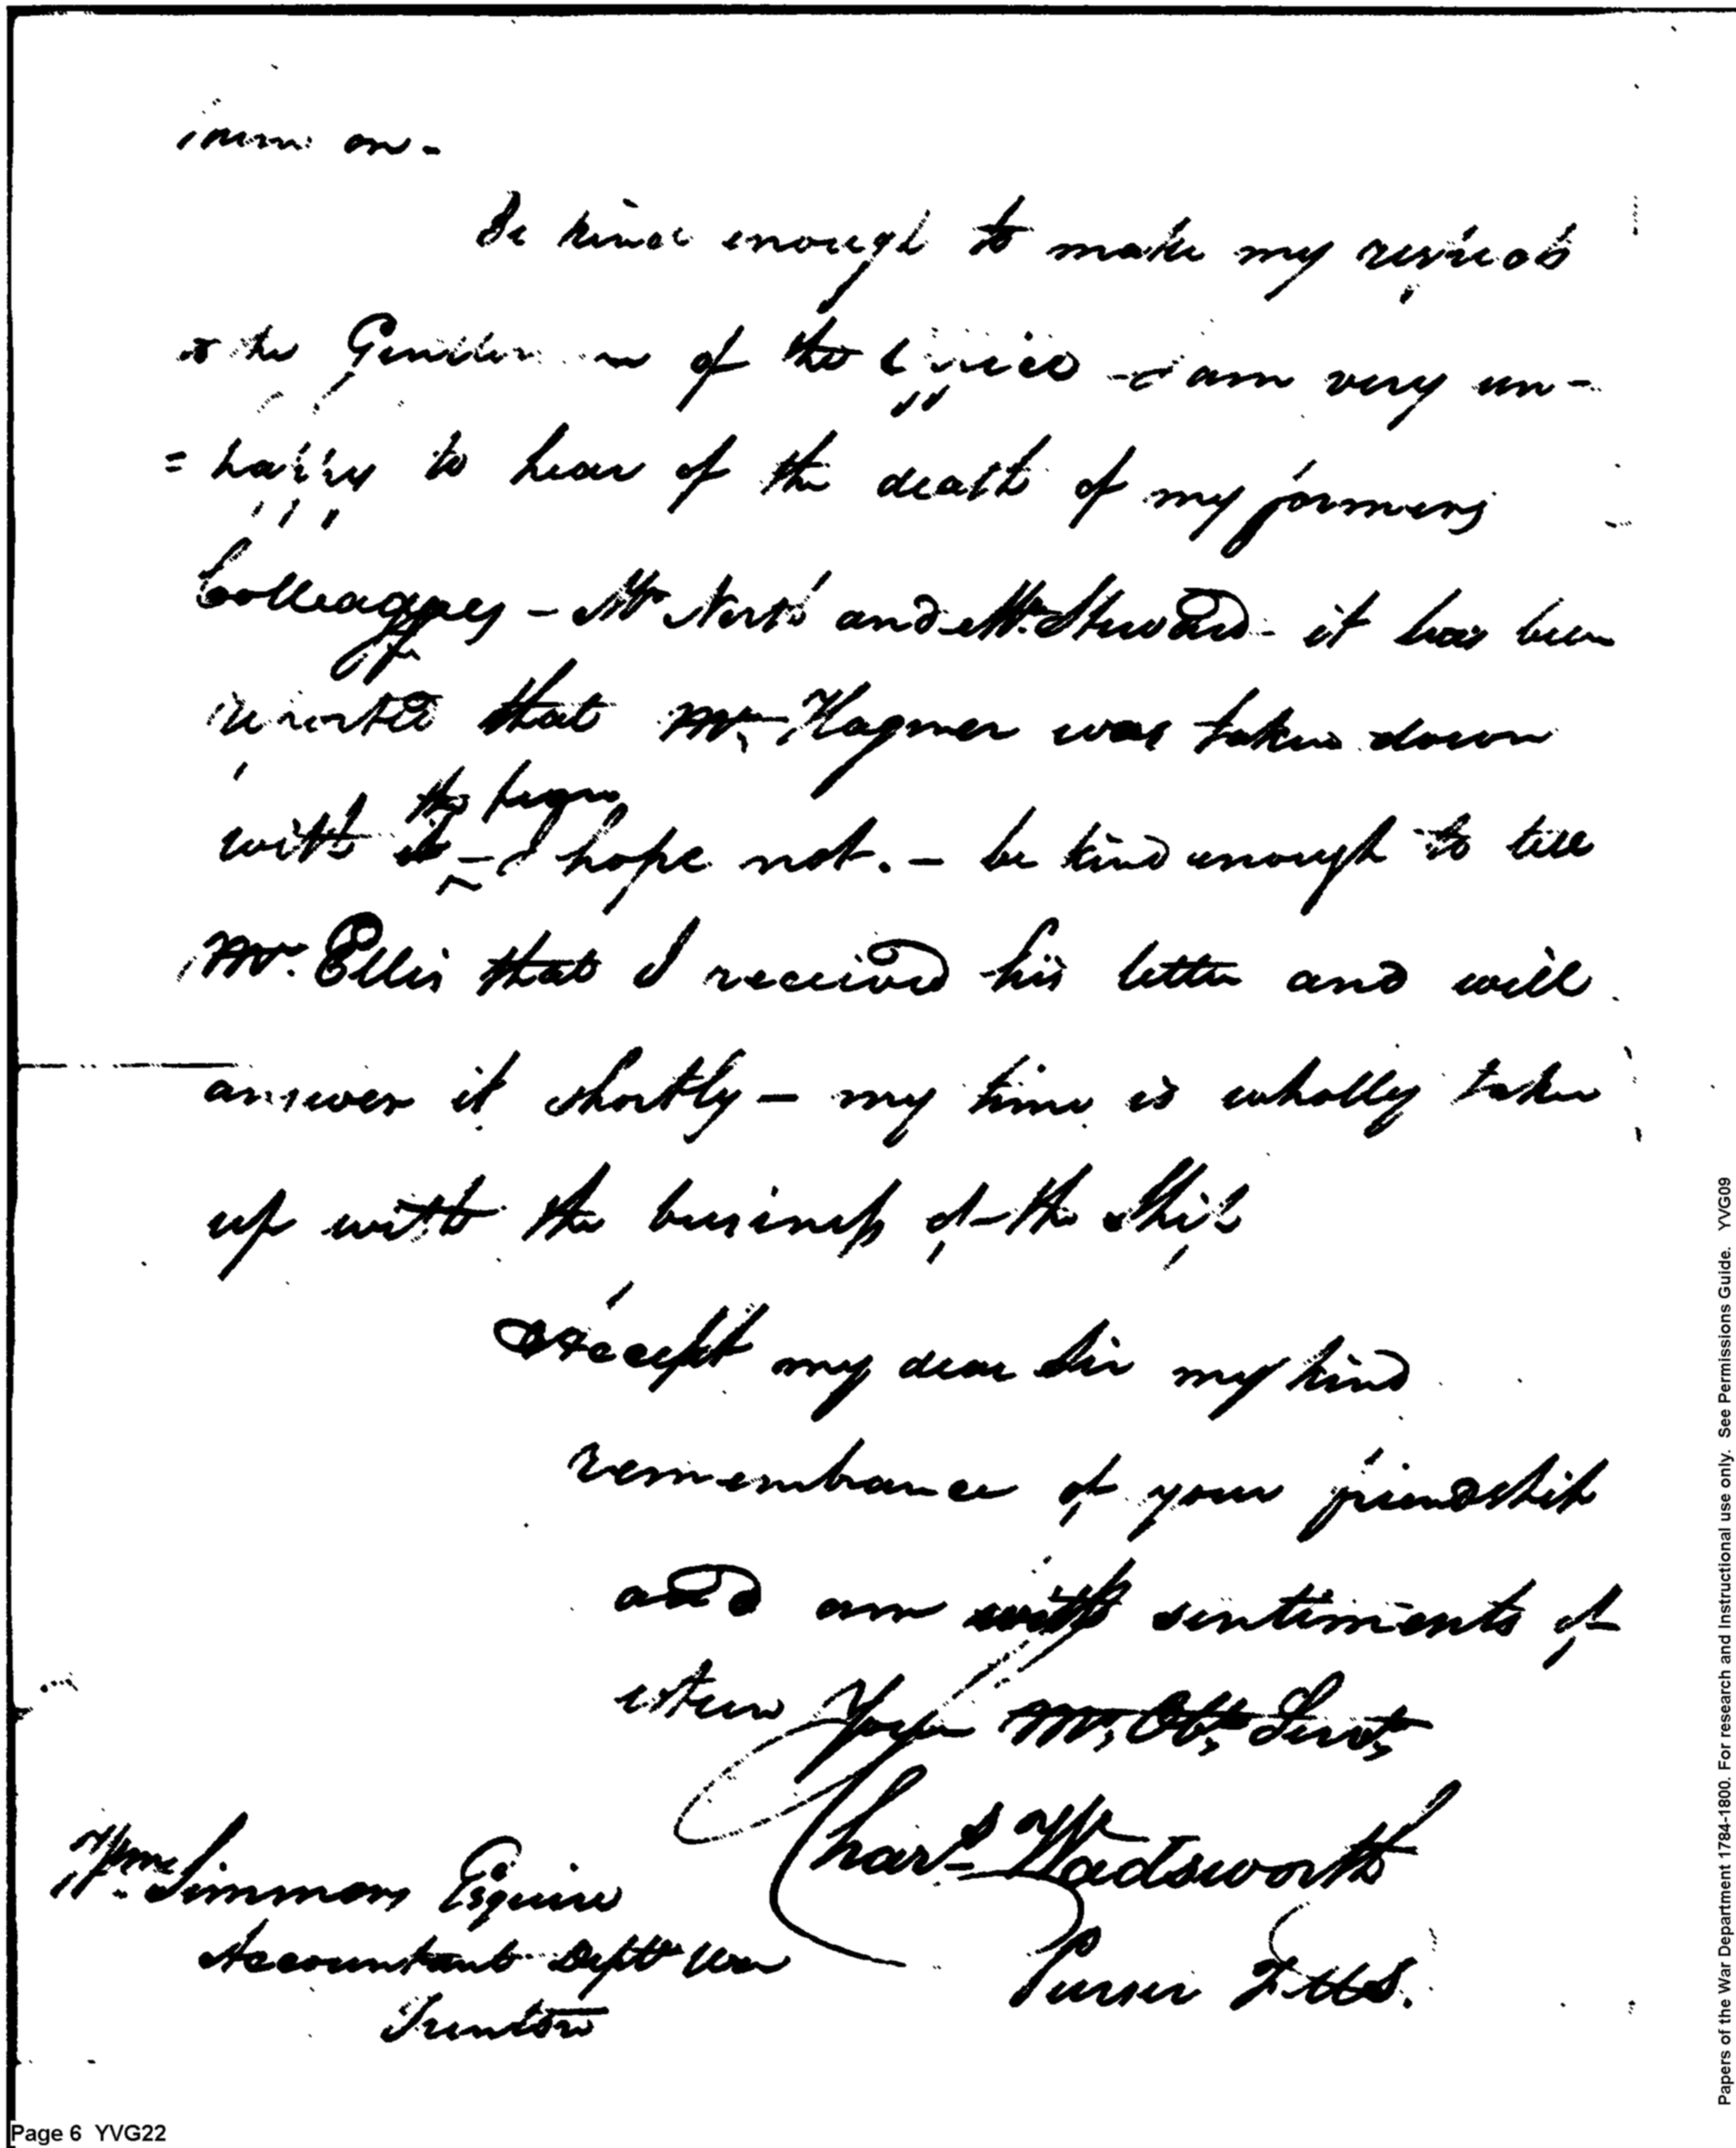 on -
Be kind enough to make my respects
to the Gentlemen of the Office - I am very un-
=happy to hear of the death of my former
Colleagues - Mr North and Mr. Steward - it has been
reported that Mr. Hagner was taken down
the fever
with it - I hope not. - be kind enough to tell
Mr. Ellis that I received his letter and will
answer it shortly - my time is wholly taken
up with the business of the Ship
Accept my dear Sir my kind
remembrance of your friendship
and am with sentiments of
esteem Your Mt. Obt. Servt,
Chars. Wadsworth
Purser
Wm. Simmons Esquire
Accountant Deptt War
Trenton
Page 6 YVG22
Papers of the War Department 1784-1800. For research and instructional use only. See Permissions Guide. YVG09